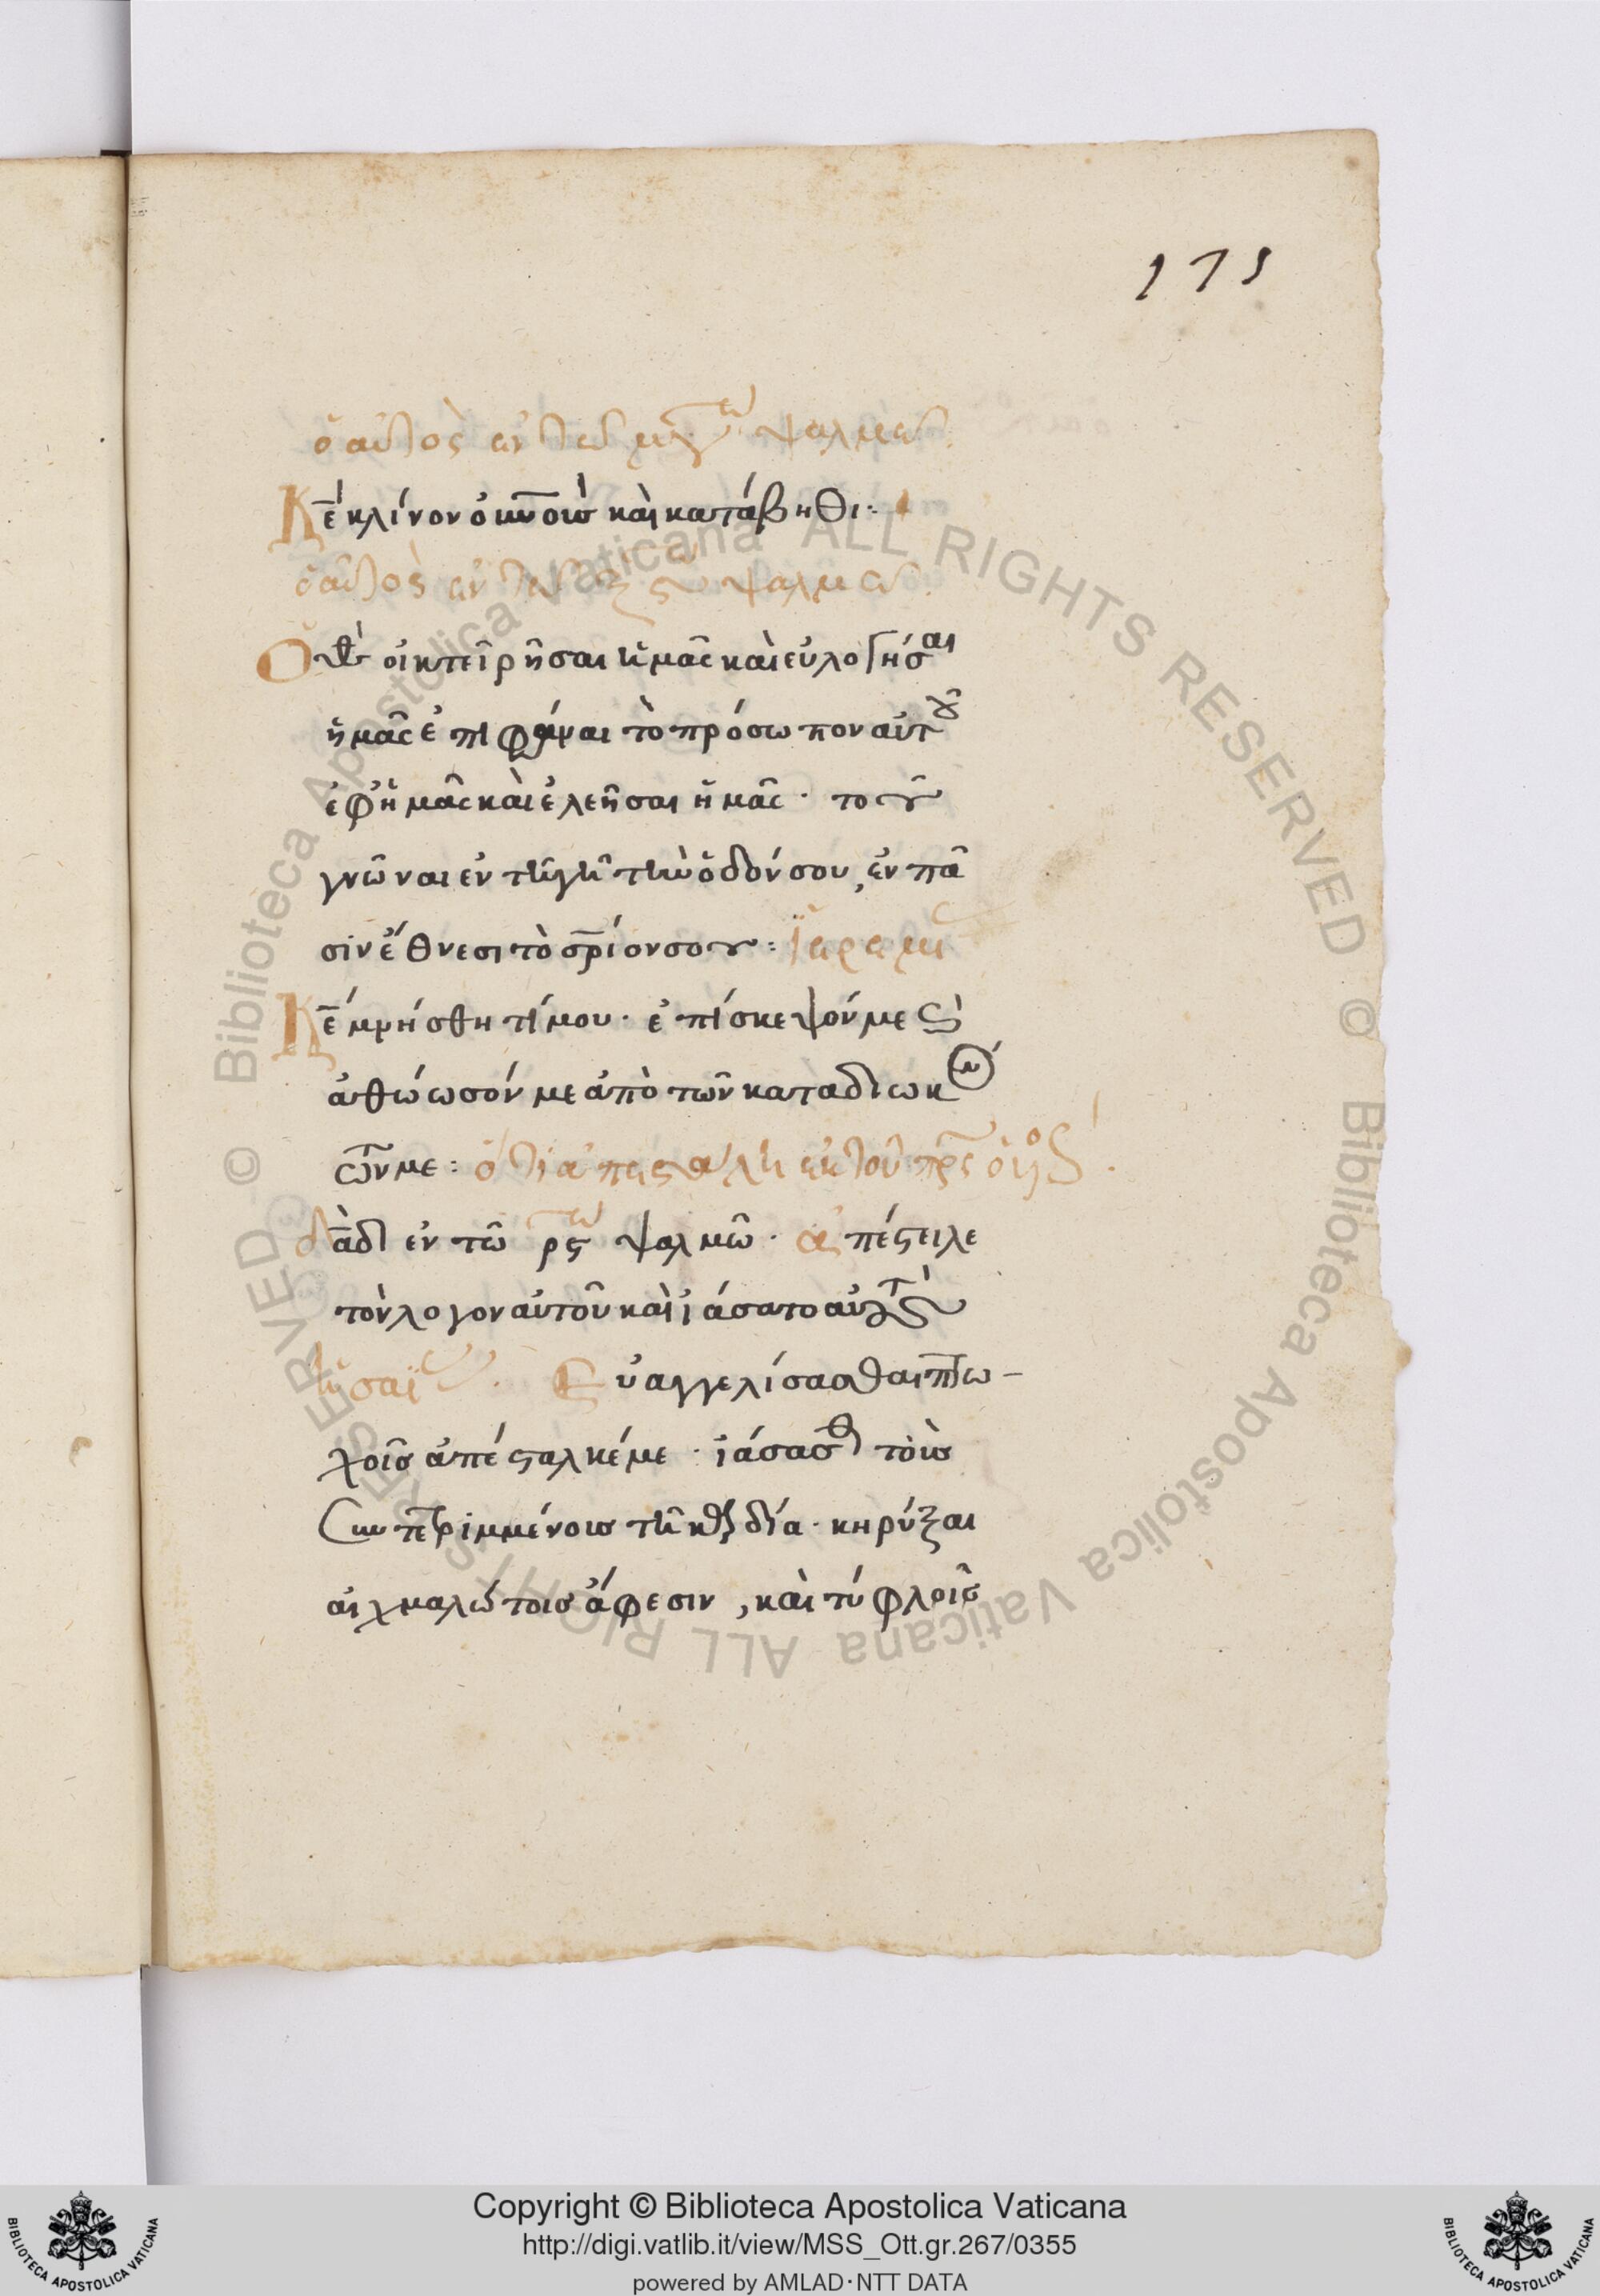 171
ὁ αὐτὸς ἐν τῶ ρμγω ψαλμῶ.
Κε κλίνον οὐνοὺσ καὶ κατάβηθι:
ὁ αὐτὸς ἐν τῶ ξς ψαλμῶ.
Ὁ θς οἰκτειρῆσαι ἡμᾶς καὶ εὐλογήσαι
ἡμᾶς ἐπιφάναι τὸ πρόσωπον αὐτοῦ
ἐφ ἡμᾶς καὶ ἐλεῆσαι ἡμᾶς· τοῦ
γνῶναι ἐν τῆ γῆ τὴν ὁδόν σου, ἐν πᾶ
σιν ἔθνεσι τὸ σριόν σου: Ἱερεμι
Κε μνήσθητί μου· ἐπίσκεψόν με καὶ
ἀθώωσόν με ἀπὸ τῶν καταδιωκόν
των με: ὅτι ἀπεστάλη ἐκ τοῦ πρς ὁ υἱός
δαδ ἐν τῶ ρςω ψαλμῶ· ἀπέστειλε
τὸν λογον αὐτοῦ καὶ ἰάσατο αὐτοὺς
ἡσαΐου. Εὐαγγελίσασθαι πτω-
χοῖσ ἀπέσταλκέ με· ἰάσασθαι τοὺσ
συντετριμμένοισ τῆ καρδία· κηρύξαι
αἰχμαλώτοισ ἄφεσιν, καὶ τύφλοῖσ
Copyright © Biblioteca Apostolica Vaticana
http://digi.vatlib.it/view/MSS_Ott.gr.267/0355
powered by AMLAD·NTT DATA
BIBLIOTECA APOSTOLICA VATICANA
BIBLIOTECA APOSTOLICA VATICANA
© Biblioteca Apostolica Vaticana ALL RIGHTS RESERVED © Biblioteca Apostolica Vaticana ALL RIGHTS RESERVED